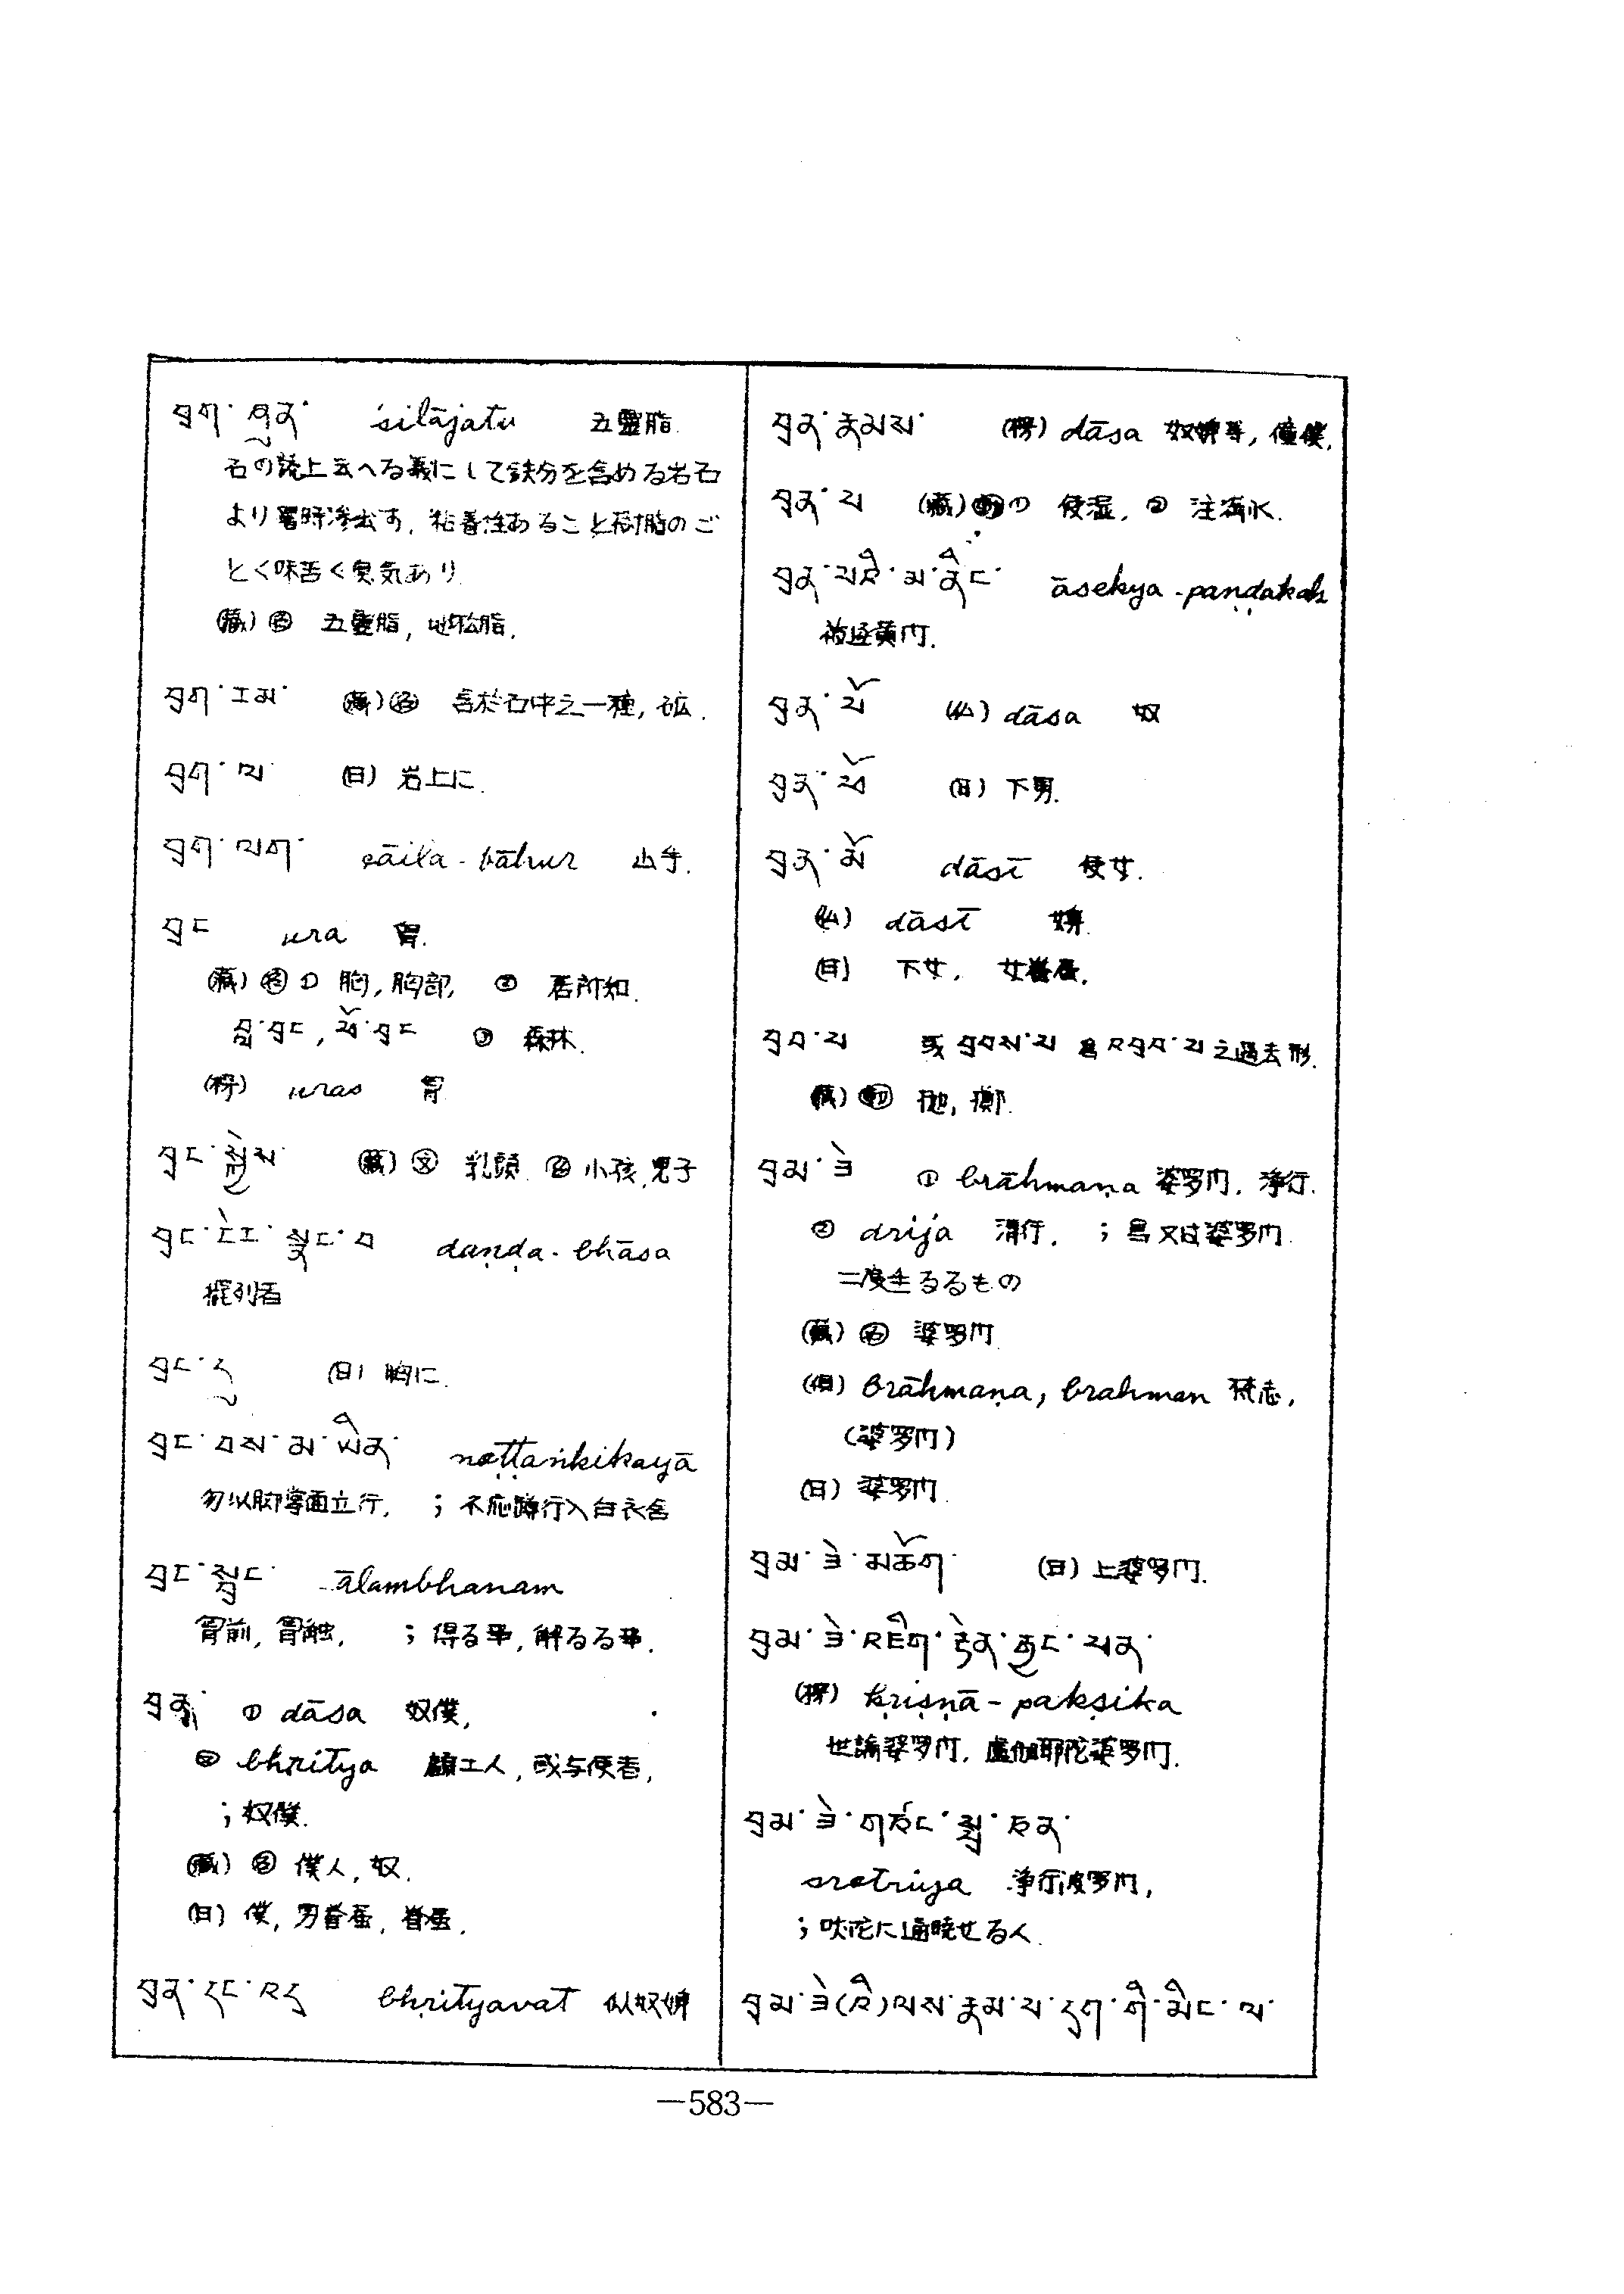 བྲག་ཞུན་ śilājatu 五靈脂.
石の読上云へる義にして鉄分を含める岩石
より暑時滲出す, 粘着性あること樹脂のご
とく味苦く臭気あり
(蔵) 名 五靈脂, 地松脂.
བྲག་རམ་ (蔵) 名 長於石中之一種, 砿.
བྲག་ལ་ (日) 岩上に.
བྲག་ལག་ śaila-bāhur 山手.
བྲང ura 胷.
(蔵) 名 ① 胸, 胸部, ② 居所如.
བླ་བྲང, པོ་བྲང ③ 森林.
(梵) uras 胷
བྲང་སྐྱེས་ (蔵) 文 乳頭 名 小孩, 児子
བྲང་ངེར་སྣང་བ daṇḍa-bhāsa
擺列者
བྲང་དུ (日) 胸に.
བྲང་བས་མ་ཡིན་ noṭṭaṅkikayā
勿以脚掌面立行, ; 不応蹲行入白衣舎
བྲང་སྦྲང་ ālambhanam
胷前, 胷触, ; 得る事, 解るる事.
བྲན་ ① dāsa 奴僕,
② bhṛitya 顧工人, 或与使者,
; 奴僕.
(蔵) 名 僕人, 奴.
(日) 僕, 男眷属, 眷属.
བྲན་དང་འད bhṛityavat 似奴婢
བྲན་རྣམས་ (梵) dāsa 奴婢等, 僮僕.
བྲན་པ (蔵) 動 ① 使湿, ② 注満水.
བྲན་པའི་མ་ནིང་ āsekya-paṇḍakaḥ
被逐黄門.
བྲན་པོ (仏) dāsa 奴
བྲན་ཕོ (日) 下男.
བྲན་མོ dāsī 使女.
(仏) dāsī 婢.
(日) 下女, 女眷属.
བྲབ་པ 或 བྲབས་པ 為 འབྲབ་པ 之過去形.
(蔵) 動 抛, 擲.
བྲམ་ཟེ ① brāhmaṇa 婆罗门, 淨行.
② drija 清行, ; 皇又は婆罗门
二度生るるもの
(蔵) 名 婆罗门
(倶) brāhmaṇa, brahman 梵志,
(婆罗门)
(日) 婆罗门.
བྲམ་ཟེ་མཆོག་ (日) 上婆罗门.
བྲམ་ཟེ་འཇིག་རྟེན་རྒྱང་པན་
(梵) kṛiṣṇā-pakṣika
世論婆罗门, 盧伽耶陀婆罗门.
བྲམ་ཟེ་གཙང་སྦྲ་ཅན་
srotriya 淨行波罗门,
; 吠陀に通暁せる人.
བྲམ་ཟེ(འི)ལས་རྣམ་པ་དྲུག་གི་མིང་ལ་
—583—